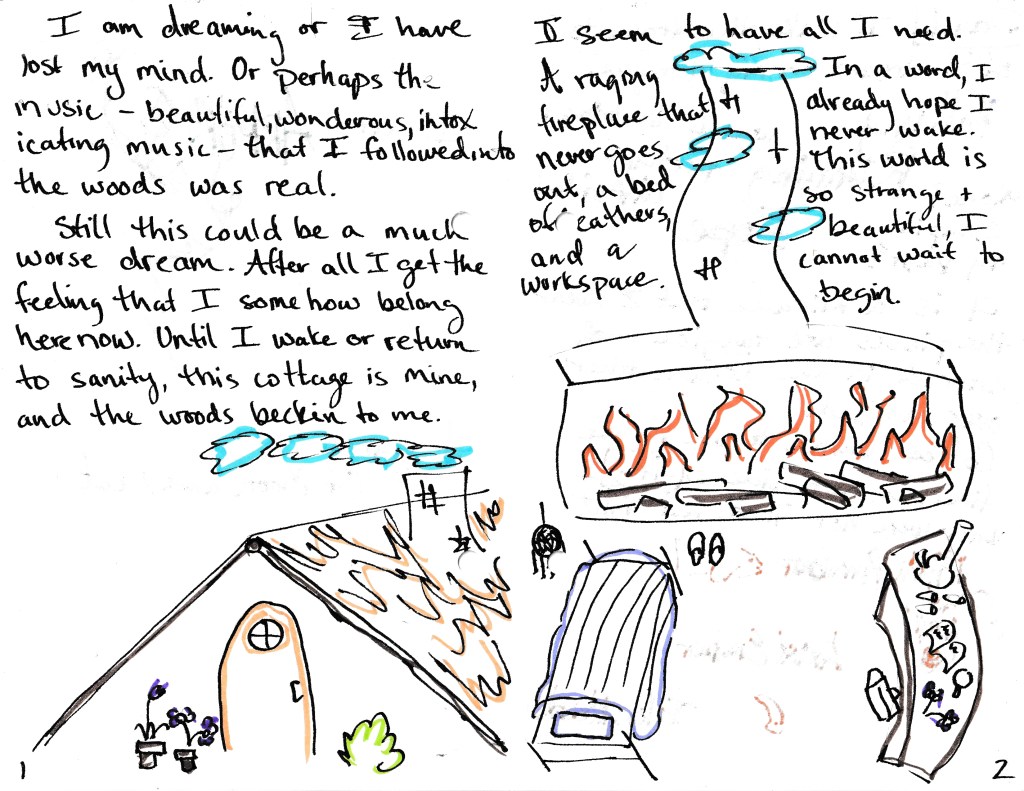 I am dreaming or I have
lost my mind. Or perhaps the
music - beautiful, wonderous, intox
icating music - that I followed into
the woods was real.
Still this could be a much
worse dream. After all I get the
feeling that I somehow belong
here now. Until I wake or return
to sanity, this cottage is mine,
and the woods beckin to me.
1
I seem to have all I need.
A raging
fireplace that
never goes
out, a bed
of eathers,
and a
workspace.
In a word, I
already hope I
never wake.
This world is
so strange +
beautiful, I
cannot wait to
begin.
2